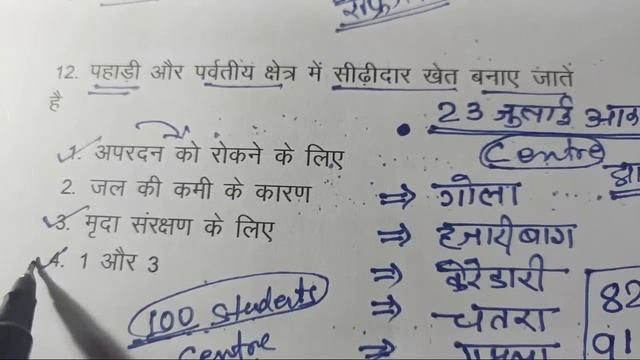 12. पहाड़ी और पर्वतीय क्षेत्र में सीढ़ीदार खेत बनाए जाते
है
23 जुलाई
Centre
1. अपरदन को रोकने के लिए
2. जल की कमी के कारण
3. मृदा संरक्षण के लिए
4. 1 और 3
⇒ गोला
⇒ हजारीबाग
⇒ केरेडारी
⇒ चतरा
100 students
Centre
82
91